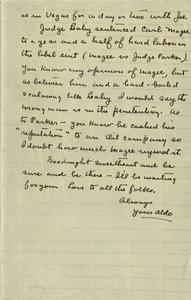 is in Vegas for a day or two with Joe.
Judge Leahy sentenced Carl Magee
to a year and a half of hard labor in
the label suit (Magee vs Judge Parker).
You know my opinion of Magee, but
as between him and a hard-boiled
scalawag like Leahy I would say the
wrong man is in the penitentiary. As
to Parker - you know he cashed his
"reputation" to an oil company so
I doubt how much Magee injured it.
Goodnight sweetheart and be
sure and be there - I'll be waiting
for you. Love to all the folks.
Always
Your Aldo